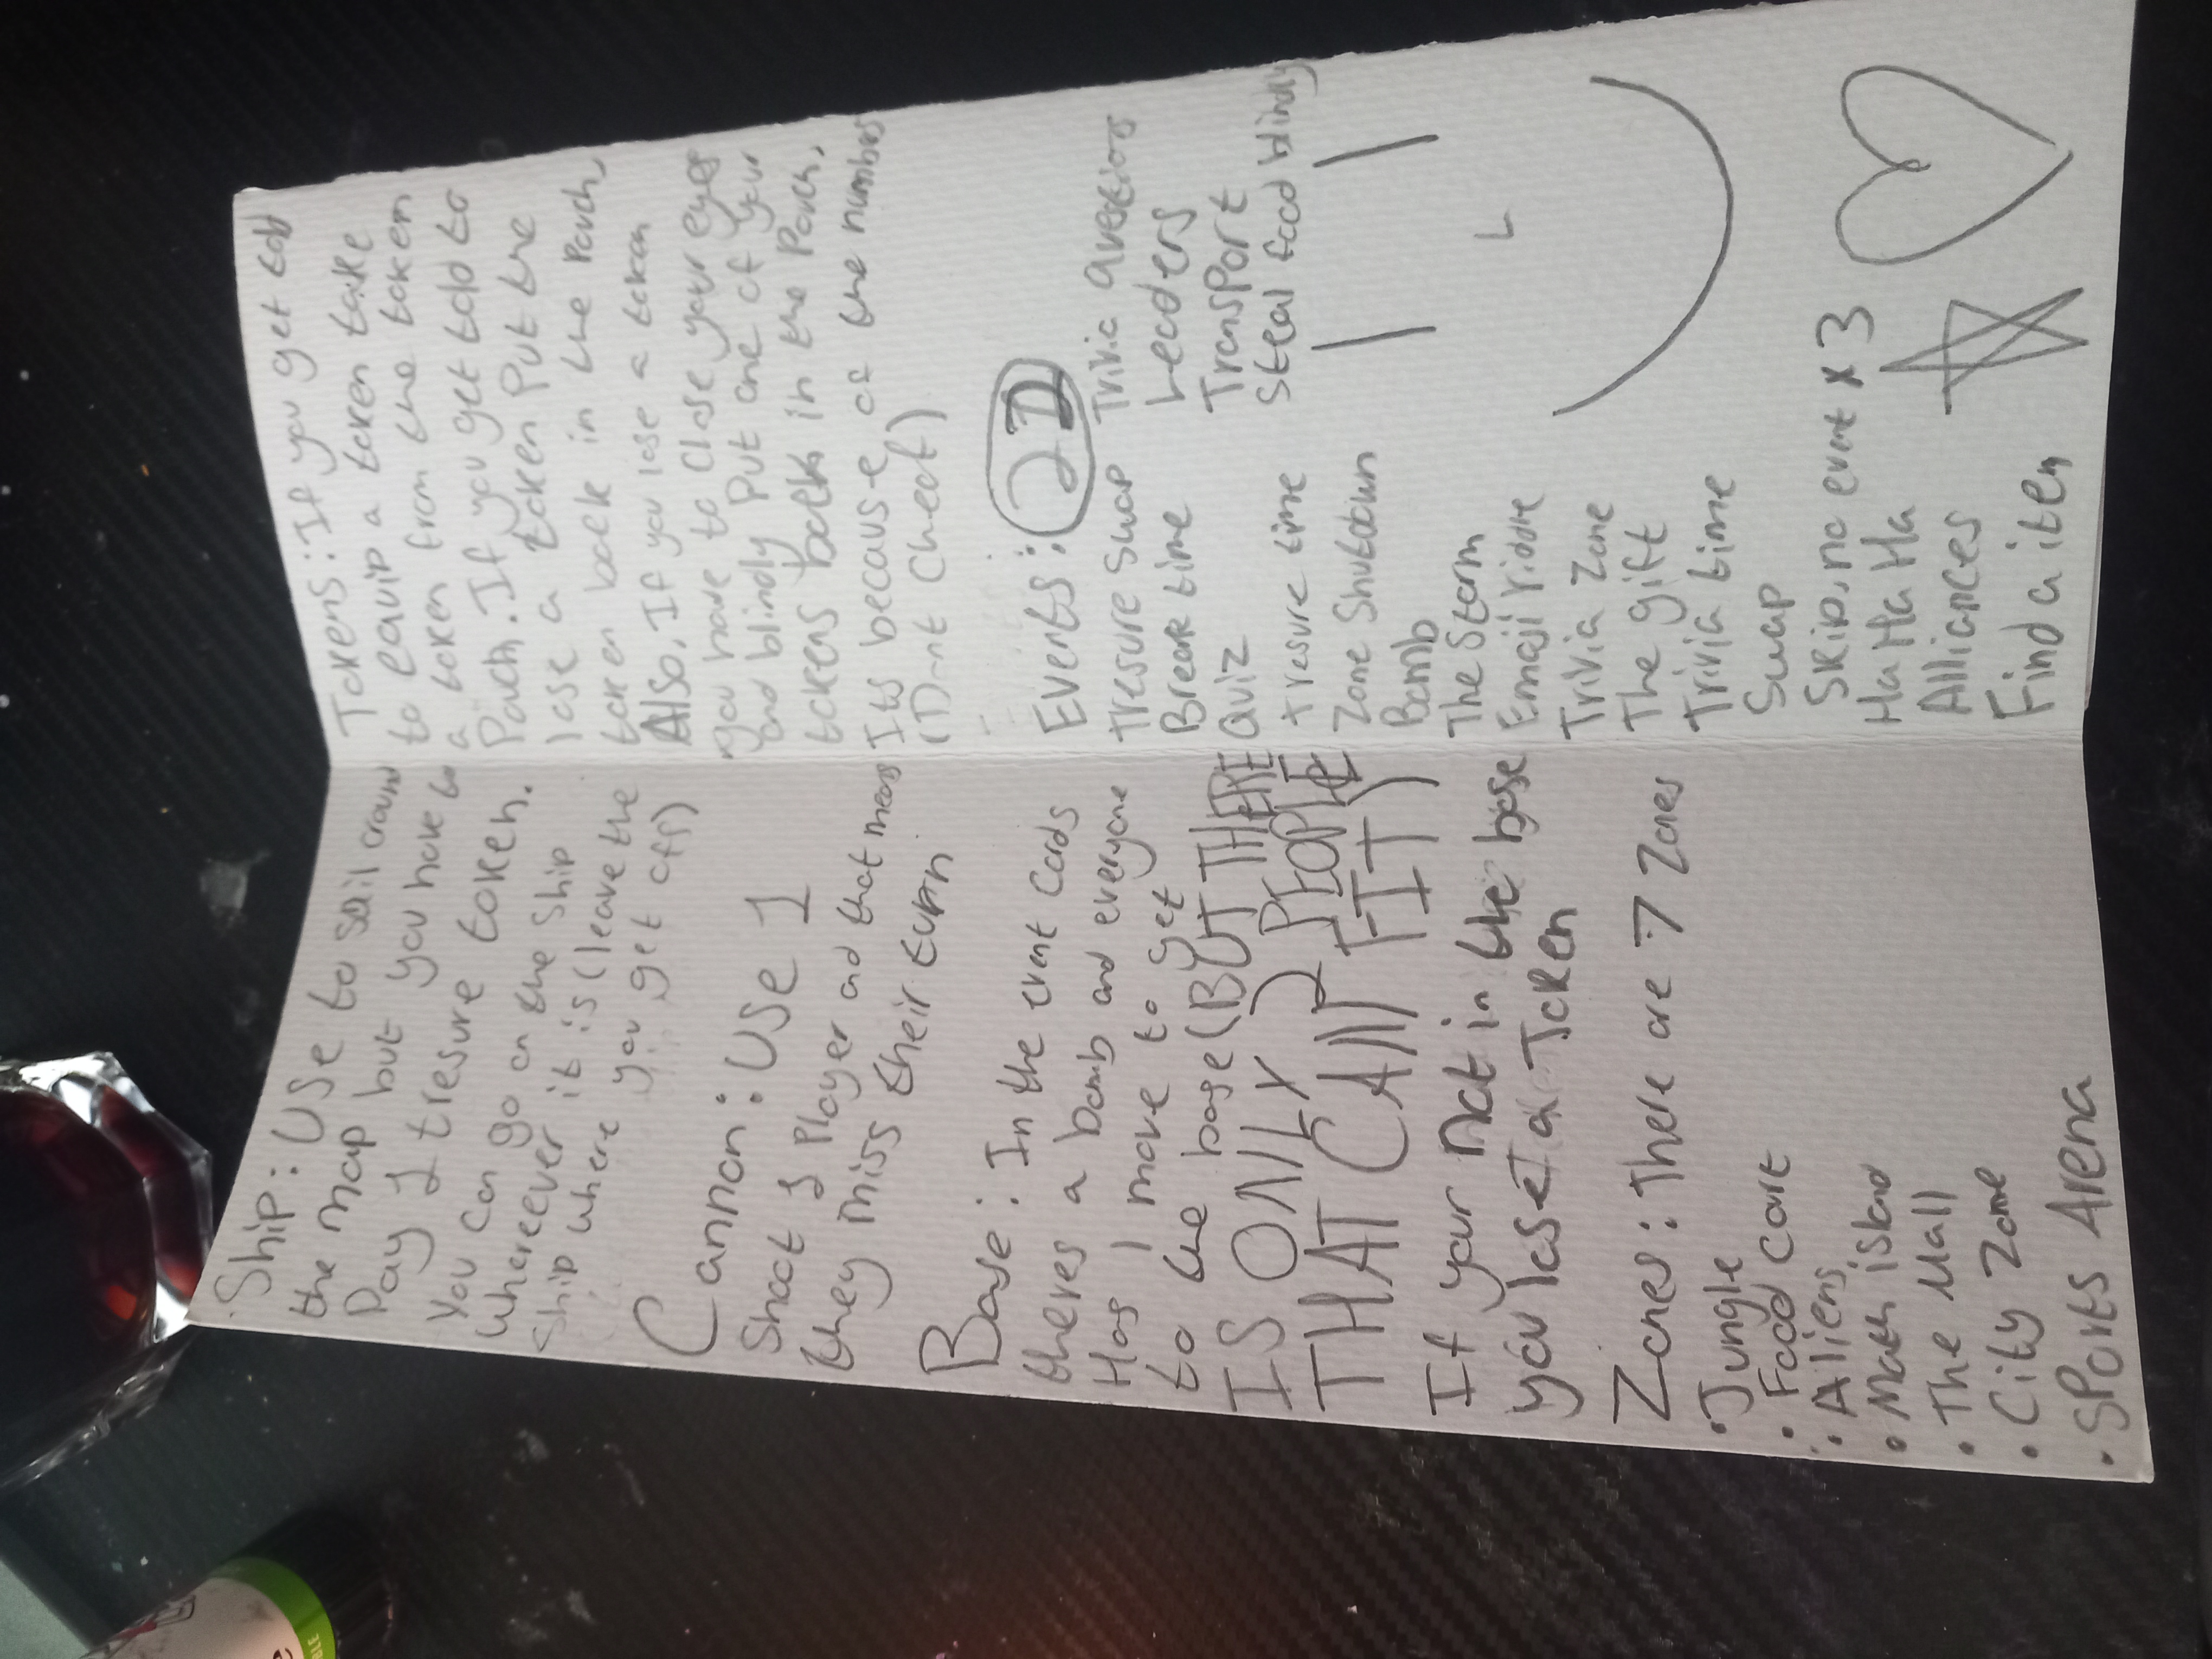 Ship: Use to sail around
the map but you have to
Pay 1 tresure token.
You can go on the ship
Whereever it is (leave the
Ship where you get off)
Cannon: Use 1
Shoot 1 Player and that means
they miss their turn
Base: In the event cards
theres a bomb and everyone
Has 1 move to get
to the base (BUT THERE
IS ONLY 2 PEOPLE
THAT CAN FIT)
If your not in the base
you lose a Token
Zones: There are 7 Zones
• Jungle
• Food court
• Aliens
• Math island
• The Mall
• City Zone
• Sports Arena
Tokens: If you get told
to equip a token take
a token from the token
Pouch. If you get told to
lose a token Put the
token back in the Pouch,
Also, If you lose a token
you have to close your eyes
and blindly Put one of your
tokens back in the Pouch,
Its because of the numbers
(Dont cheat)
Events: 20
Tresure swap
Break time
Quiz
tresure time
Zone Shutdown
Bomb
The Storm
Emoji riddle
Trivia Zone
The gift
Trivia time
Swap
Skip, no event x 3
Ha Ha Ha
Alliances
Find a item
Trivia Questions
Leaders
TransPort
Steal food blindly